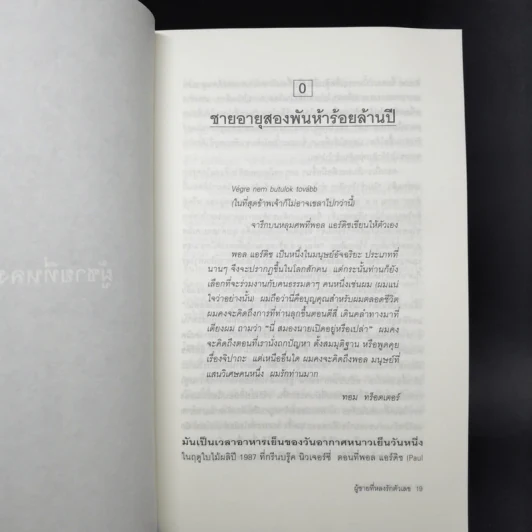 0
ชายอายุสองพันห้าร้อยล้านปี
Végre nem butulok tovább
(ในที่สุดข้าพเจ้าก็ไม่อาจเขลาไปกว่านี้)
จารึกบนหลุมศพที่พอล แอร์ดิชเขียนให้ตัวเอง
พอล แอร์ดิช เป็นหนึ่งในมนุษย์อัจฉริยะ ประเภทที่
นานๆ จึงจะปรากฏขึ้นในโลกสักคน แต่กระนั้นท่านก็ยัง
เลือกที่จะร่วมงานกับคนธรรมดาๆ คนหนึ่งเช่นผม (ผมแน่
ใจว่าอย่างนั้น) ผมถือว่านี่คือบุญคุณสำหรับผมตลอดชีวิต
ผมคงจะคิดถึงการที่ท่านลุกขึ้นตอนตีสี่ เดินคลำทางมาที่
เตียงผม ถามว่า "นี่ สมองนายเปิดอยู่หรือเปล่า" ผมคง
จะคิดถึงตอนที่เรานั่งถกปัญหา ตั้งสมมุติฐาน หรือพูดคุย
เรื่องจิปาถะ แต่เหนืออื่นใด ผมคงจะคิดถึงพอล มนุษย์ที่
แสนวิเศษคนหนึ่ง ผมรักท่านมาก
ทอม ทร็อตเตอร์
มันเป็นเวลาอาหารเย็นของวันอากาศหนาวเย็นวันหนึ่ง
ในฤดูใบไม้ผลิปี 1987 ที่กรีนบรู้ค นิวเจอร์ซี่ ตอนที่พอล แอร์ดิช (Paul
ผู้ชายที่หลงรักตัวเลข 19